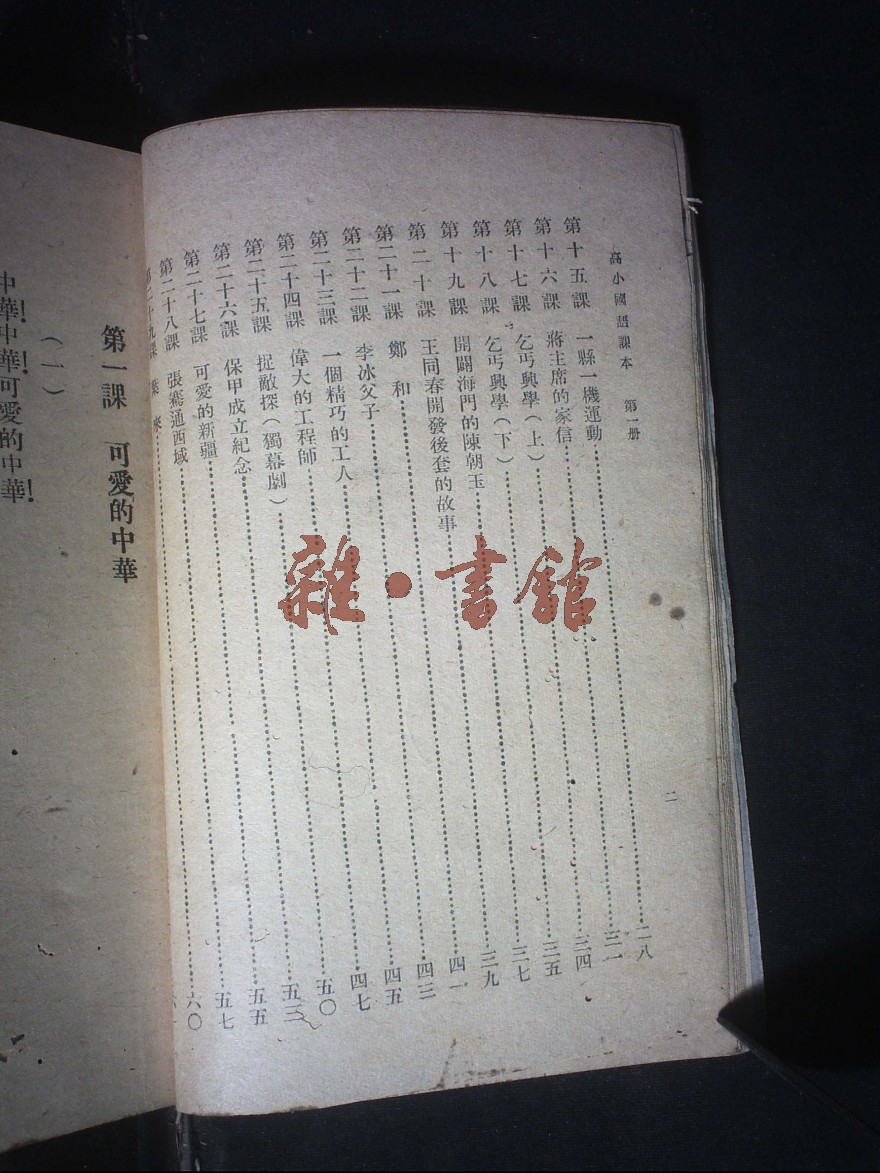 高小國語課本 第一册
二
第十五課 一縣一機運動……二八
第十六課 蔣主席的家信……三一
第十七課 乞丐興學（上）……三四
第十八課 乞丐興學（下）……三五
第十九課 開闢海門的陳朝玉……三七
第二十課 王同春開發後套的故事……三九
第二十一課 鄭和……四一
第二十二課 李冰父子……四三
第二十三課 一個精巧的工人……四五
第二十四課 偉大的工程師……四七
第二十五課 捉敵探（獨幕劇）……五〇
第二十六課 保甲成立紀念……五三
第二十七課 可愛的新疆……五五
第二十八課 張騫通西域……五七
第二十九課 葉來……六〇
第一課 可愛的中華
（一）
中華！中華！可愛的中華！
雜·書館